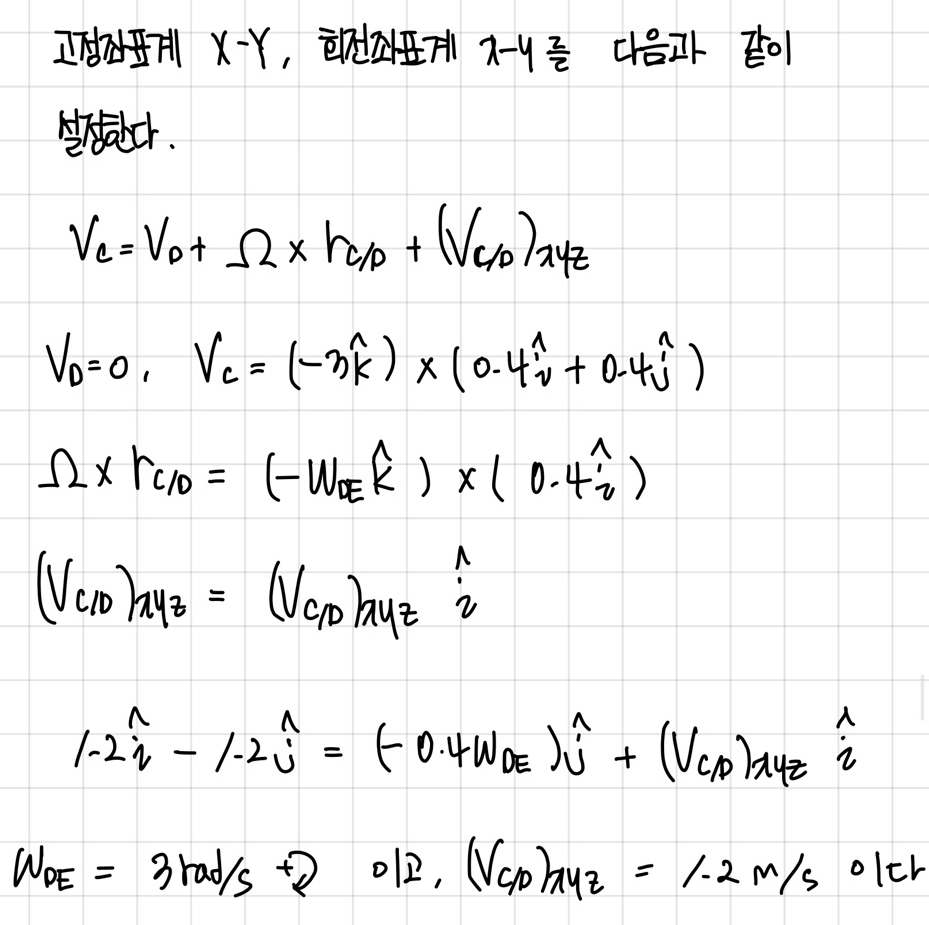 고정좌표계 X-Y, 회전좌표계 x-y를 다음과 같이
설정한다.
V_C = V_D + Ω × r_{C/D} + (V_{C/D})_{xyz}
V_D = 0, V_C = (-3k̂) × (0.4î + 0.4ĵ)
Ω × r_{C/D} = (-W_{DE} k̂) × (0.4î)
(V_{C/D})_{xyz} = (V_{C/D})_{xyz} î
1.2î - 1.2ĵ = (-0.4W_{DE})ĵ + (V_{C/D})_{xyz} î
W_{DE} = 3 rad/s +↻ 이고, (V_{C/D})_{xyz} = 1.2 m/s 이다